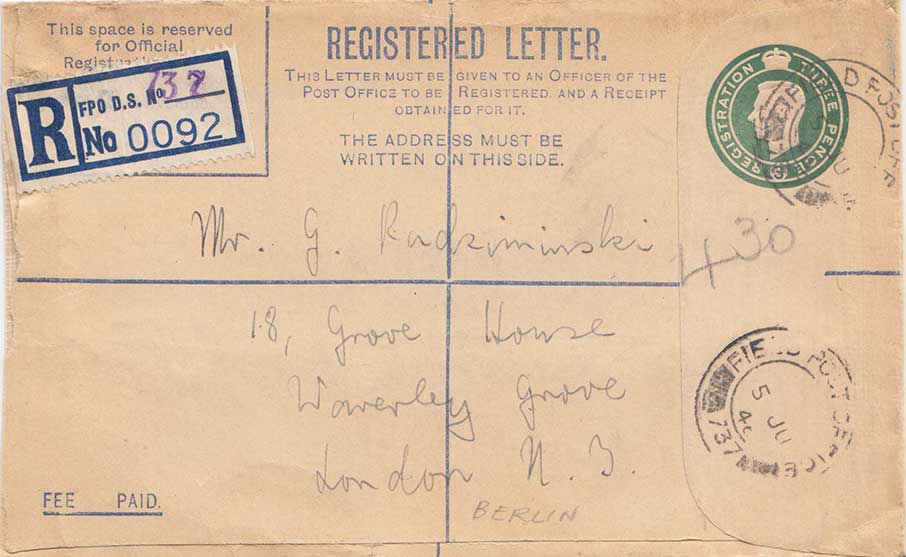 This space is reserved
for Official
REGISTERED LETTER.
THIS LETTER MUST BE GIVEN TO AN OFFICER OF THE
POST OFFICE TO BE REGISTERED, AND A RECEIPT
OBTAINED FOR IT.
THE ADDRESS MUST BE
WRITTEN ON THIS SIDE.
R
FPO D.S. No 737
No 0092
REGISTRATION THREE PENCE
Mr. G. Radziminski
430
18, Grove House
Waverley Grove
London N. 3.
FIELD POST OFFICE
5 JU
737
FEE PAID.
BERLIN